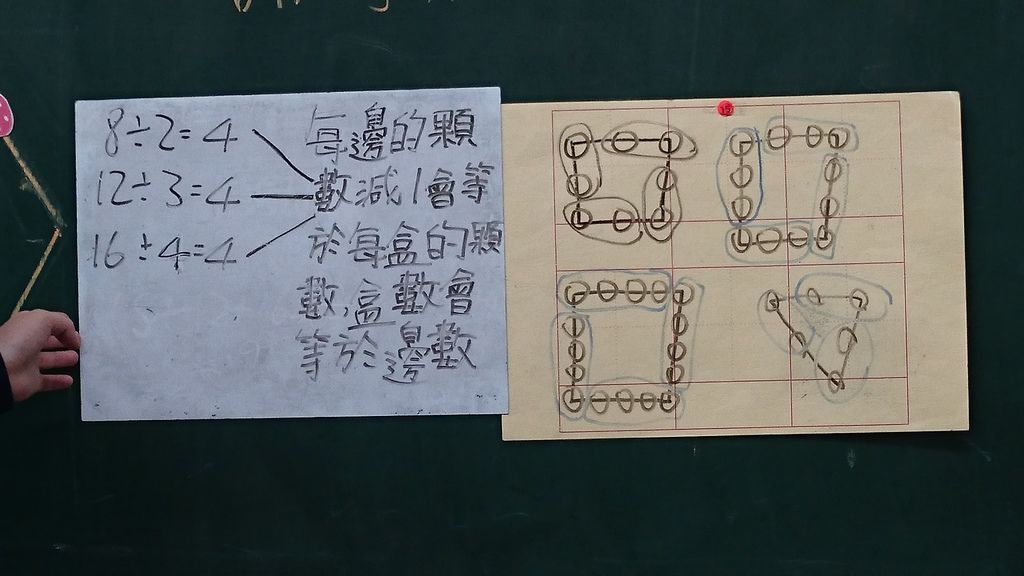 8÷2=4
12÷3=4
16÷4=4
每邊的顆
數減1會等
於每盒的顆
數,盒數會
等於邊數